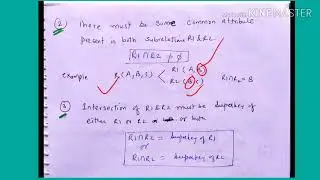 Made with KINEMASTER
(2) There must be some common attribute
present in both subrelations R1 & R2
R1∩R2 ≠ φ
example R(A,B,C) < R1(A,B)
R2(B,C) R1∩R2 = B
(3) Intersection of R1&R2 must be superkey of
either R1 or R2 or both
R1∩R2 = Superkey of R1
or
R1∩R2 = Superkey of R2